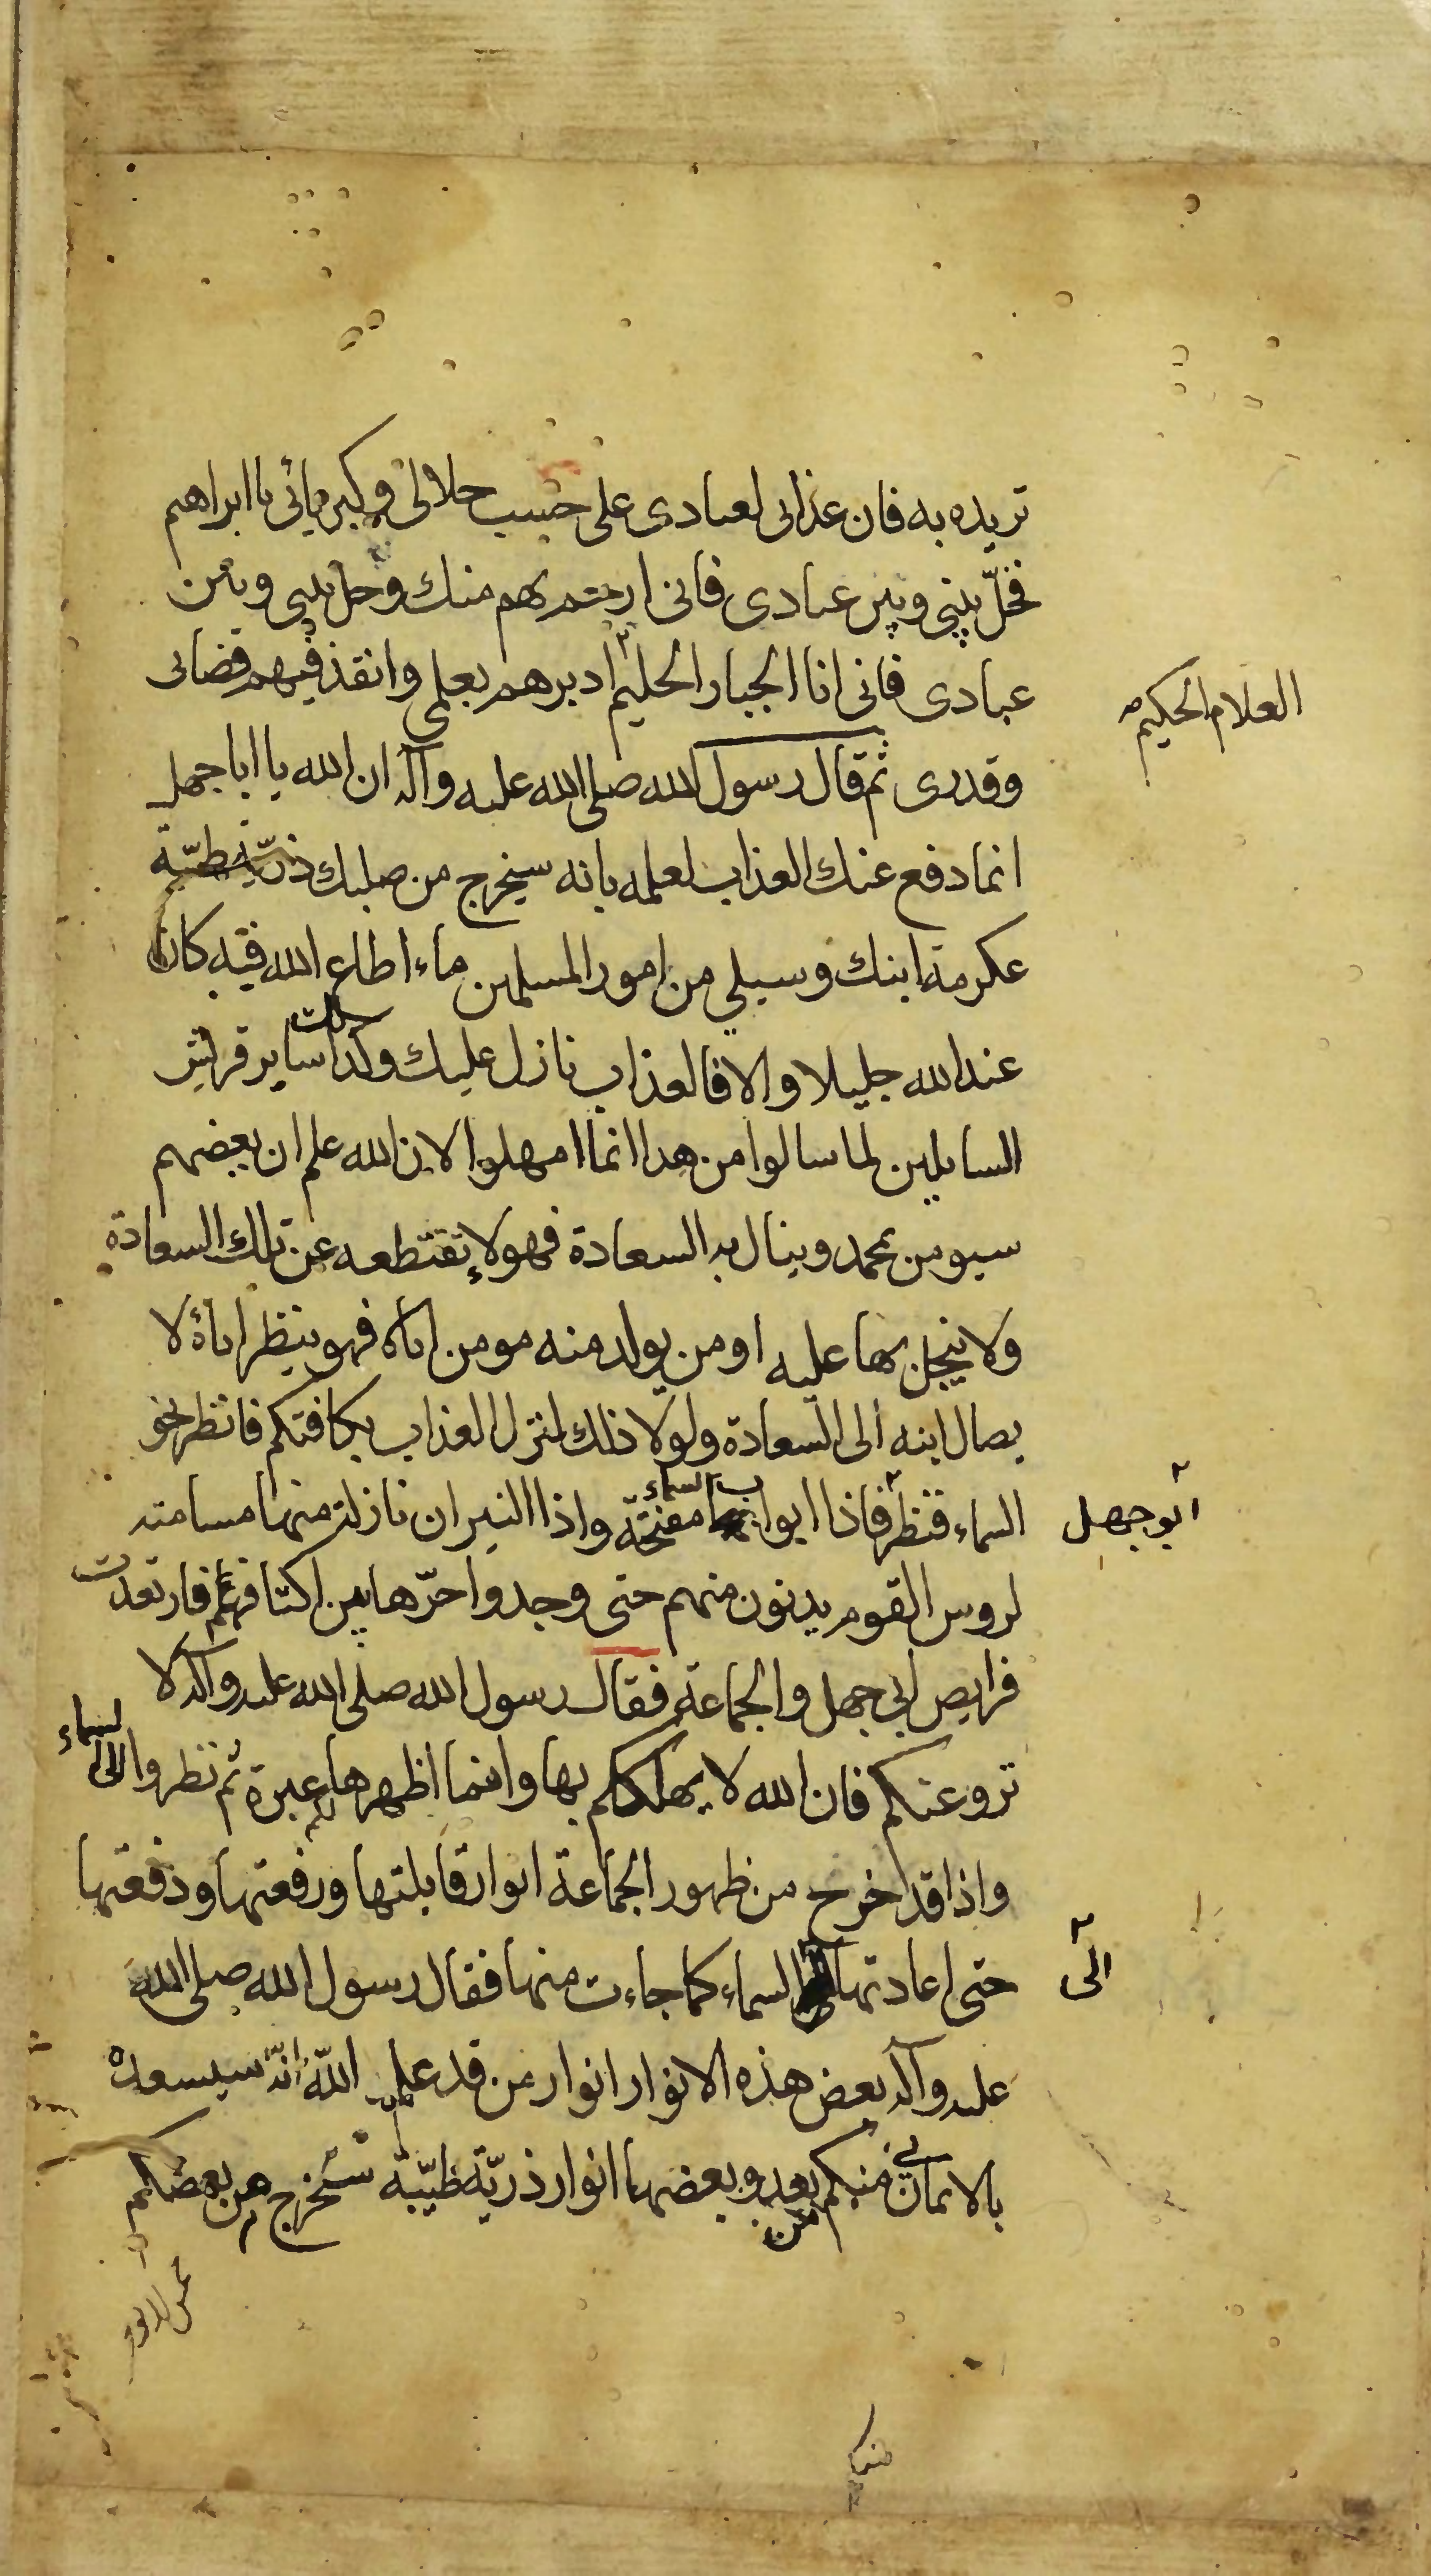 تريده به فان عذابى لعبادى على حسب جلالى وكبريائى يا ابراهيم
فخلّ بينى وبين عبادى فانى ارحم بهم منك وخل بينى وبين
عبادى فانى انا الجبار الحليم ادبرهم بعلمى وانفذ فيهم قضائى
العلام الحكيم
وقدرى ثم قال رسول الله صلى الله عليه وآله ان الله يا ابا جهل
انما دفع عنك العذاب لعلمه بانه سيخرج من صلبك ذريّة طيّبة
عكرمة ابنك وسيلي من امور المسلمين ماء اطاع الله فيه كان
عند الله جليلا والا فالعذاب نازل عليك وكذلك ساير قريش
السايلين لما سالوا من هذا انما امهلوا لان الله علم ان بعضهم
سيومن بمحمد وينال به السعادة فهو لا يقتطعه عن تلك السعادة
ولا يبخل بها عليه او من يولد منه مومن اباه فهو ينظر اباه لا
يصال ابنه الى السعادة ولولا ذلك لنزل العذاب بكافتكم فانظر نحو
السماء فنظر فاذا ابواب السماء مفتحة واذا النيران نازلة منها مسامته
ابو جهل
لروس القوم يدنون منهم حتى وجدوا حرّها بين اكتافهم فارتعدت
فرايص ابي جهل والجماعة فقال رسول الله صلى الله عليه وآله لا
تروعنكم فان الله لا يهلككم بها وانما اظهرها عبرة لكم ثم نظروا الى السماء
واذا قد اخرج من ظهور الجماعة انوار قابلتها ورفعتها ودفعتها
حتى اعادتها السماء كما جاءت منها فقال رسول الله صلى الله
الى
عليه وآله بعض هذه الانوار انوار من قد علم اللّه انّه سيسعده
بالايمان بي منكم من بعد وبعضها انوار ذريّة طيّبة ستخرج من بعضكم